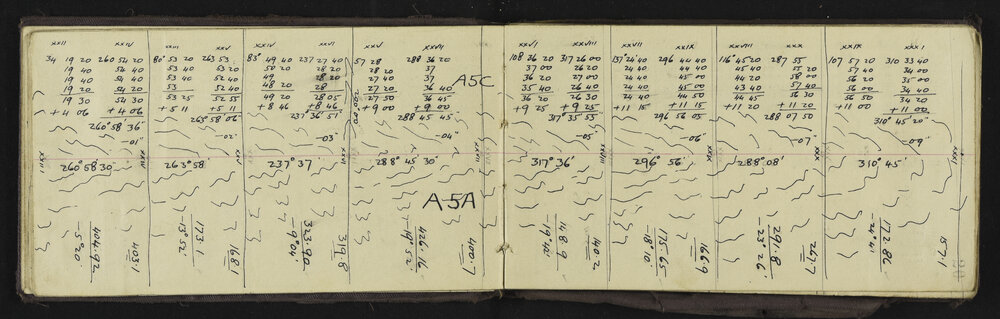 XXII XXIV XXIII XXV XXIV XXVI XXV XXVII
34 19 20 260 54 20 80° 53 20 263 53 83° 49 40 237 27 40 57 28 288 36 20
19 40 54 40 53 40 52 20 50 20 28 20 28 20 37
19 40 54 40 53 40 52 40 49 28 20 27 40 37
19 20 54 20 53 52 40 48 20 28 27 20 36 40
19 30 54 30 53 25 52 55 49 20 28 05 27 50 36 45
+ 4 06 + 4 06 + 5 11 + 5 11 + 8 46 + 8 46 + 9 00 + 9 00
260° 58 36" 263° 58 06 237° 36' 51" 288 45 45
-01 -02 -03 -04
A5C
XXII 260° 58 30 XXIV 263° 58' XXV 237° 37' XXVI 288° 45' 30' XXVII
A5A
404.92
-5° 20'
403.1
173.1
-13° 52'
168.1
323.90
-9° 04
319.8
426.16
-19° 52'
400.7
XXVI XXVIII XXVII XXIX XXVIII XXX XXIX XXXI
108 36 20 317 26 00 137° 24 40 296 44 40 116° 45 20 287 55 107 57 20 310 33 40
37 00 26 20 24 40 44 40 45 20 57 40 34 00
36 20 27 00 24 40 45 00 44 20 58 00 56 20 35 00
35 40 26 40 24 40 45 00 57 40 56 00 34 20
36 20 26 30 24 40 44 50 56 50 34 40
+ 9 25 + 9 25 + 11 15 + 11 15 + 11 20 + 11 20 + 11 00
317° 35 55 296 56 05 288 07 50 310° 45 20"
-05 -06 -07 -09
317° 36' XXVIII 296° 56' 288° 08' XXX 310° 45' XXXI
148.9
-19° 42'
140.2
175.65
-18° 10'
166.9
291.8
-23° 26'
267.7
172.86
-24° 41'
157.1